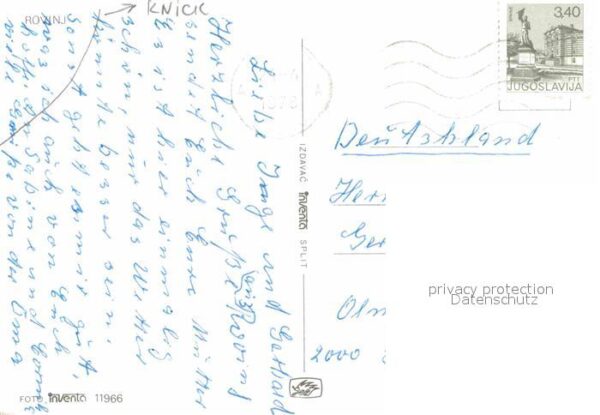 ROVINJ
KNICK
Liebe Inge und Gerhard
Herzliche Grüße aus Rovinj
sendet Euch Eure Mutter
Es ist hier einmalig
schön, nur das Wetter
könnte besser sein,
sonst geht es mir gut,
was ich auch von Euch
hoffe. Sabine und
viele Grüße von der Oma
FOTO inventa 11966
IZDAVAČ inventa SPLIT
1978
A A
3,40
PTT
JUGOSLAVIJA
Deutschland
Her
Ger
2000
privacy protection
Datenschutz